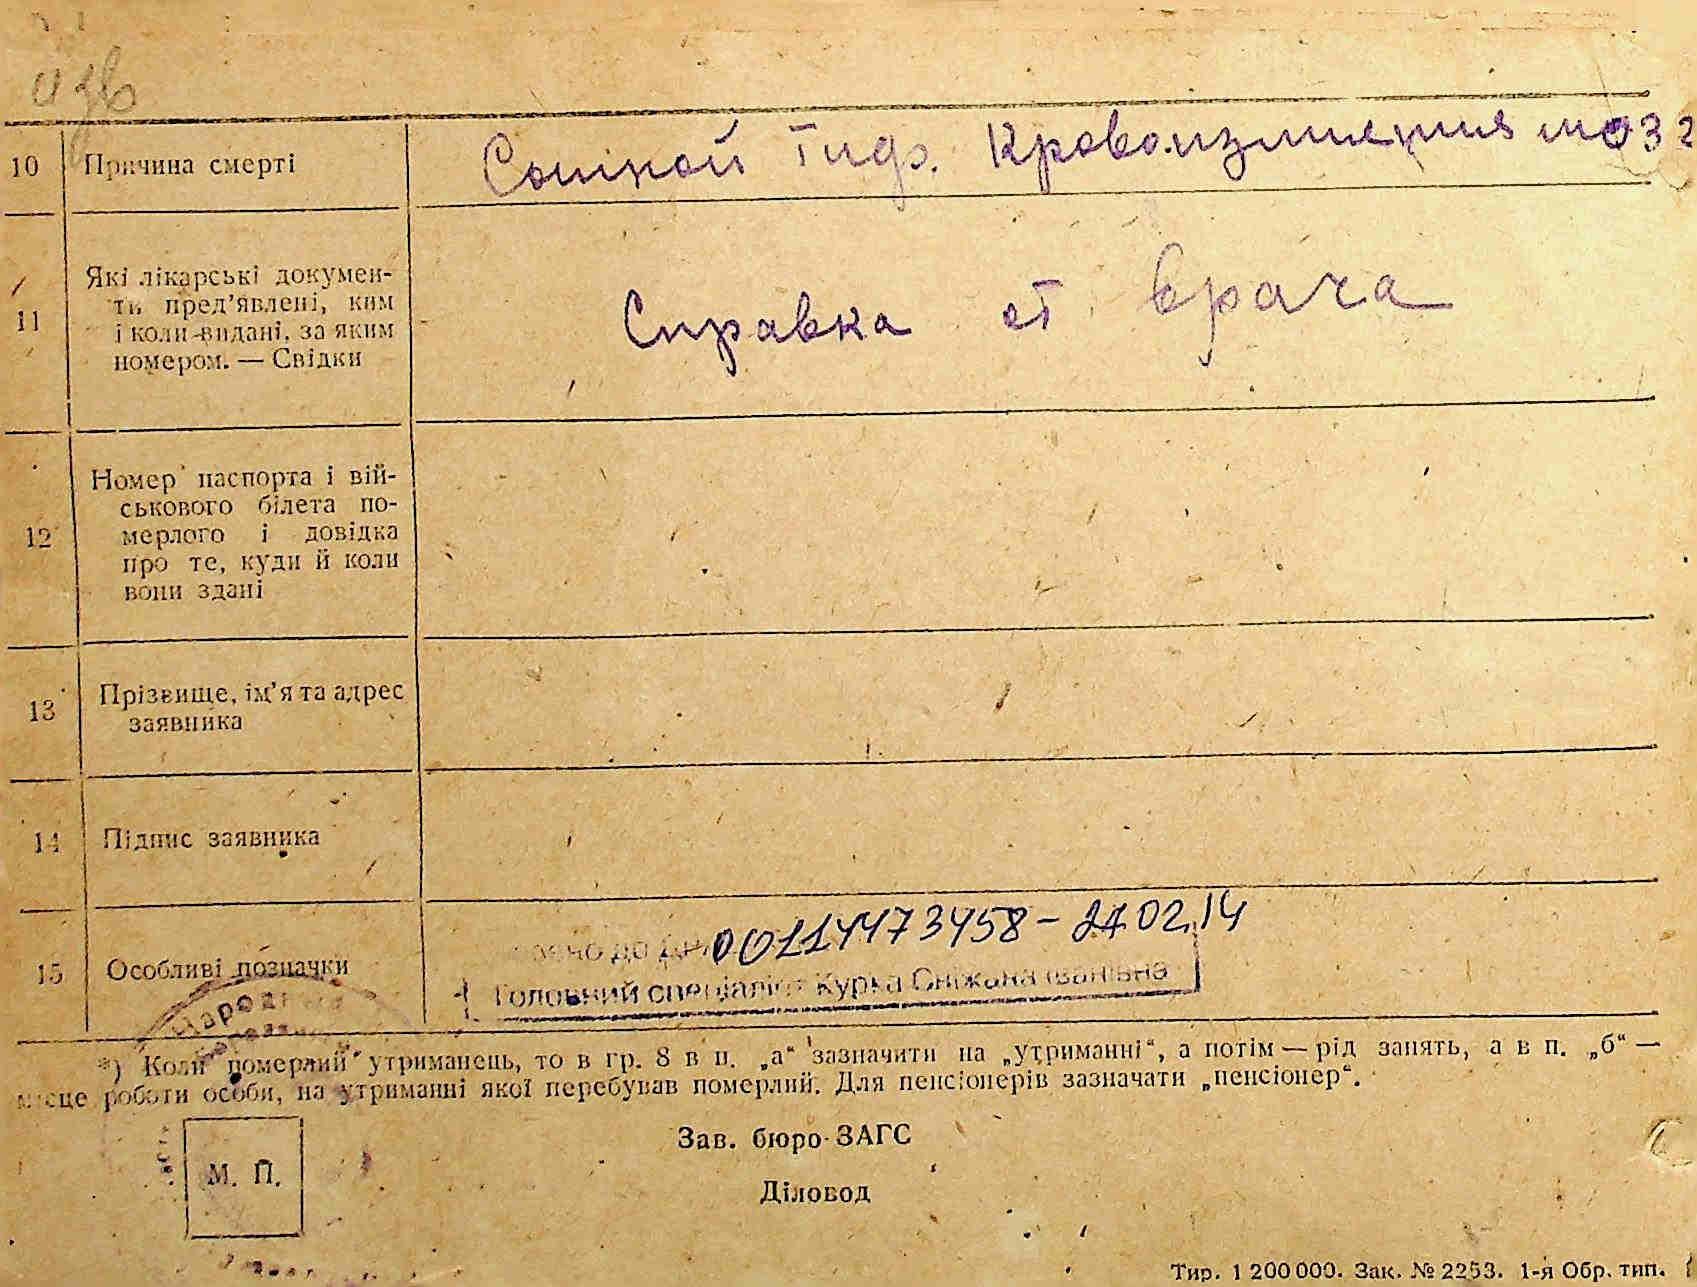 10 Причина смерті
Кровоизлияния мозг
11 Які лікарські докумен-
ти пред’явлені, ким
і коли видані, за яким
номером. — Свідки
Справка от врача
12 Номер паспорта і вій-
ськового білета по-
мерлого і довідка
про те, куди й коли
вони здані
13 Прізвище, ім’я та адрес
заявника
14 Підпис заявника
15 Особливі позначки
до 00114473458 – 27.02.14
Головний спеціаліст Курка Сніжана Іванівна
*) Коли померлий утриманець, то в гр. 8 в п. „а“ зазначити на „утриманні“, а потім — рід занять, а в п. „б“ —
місце роботи особи, на утриманні якої перебував померлий. Для пенсіонерів зазначати „пенсіонер“.
Зав. бюро ЗАГС
М. П.
Діловод
Тир. 1 200 000. Зак. № 2253. 1-я Обр. тип.